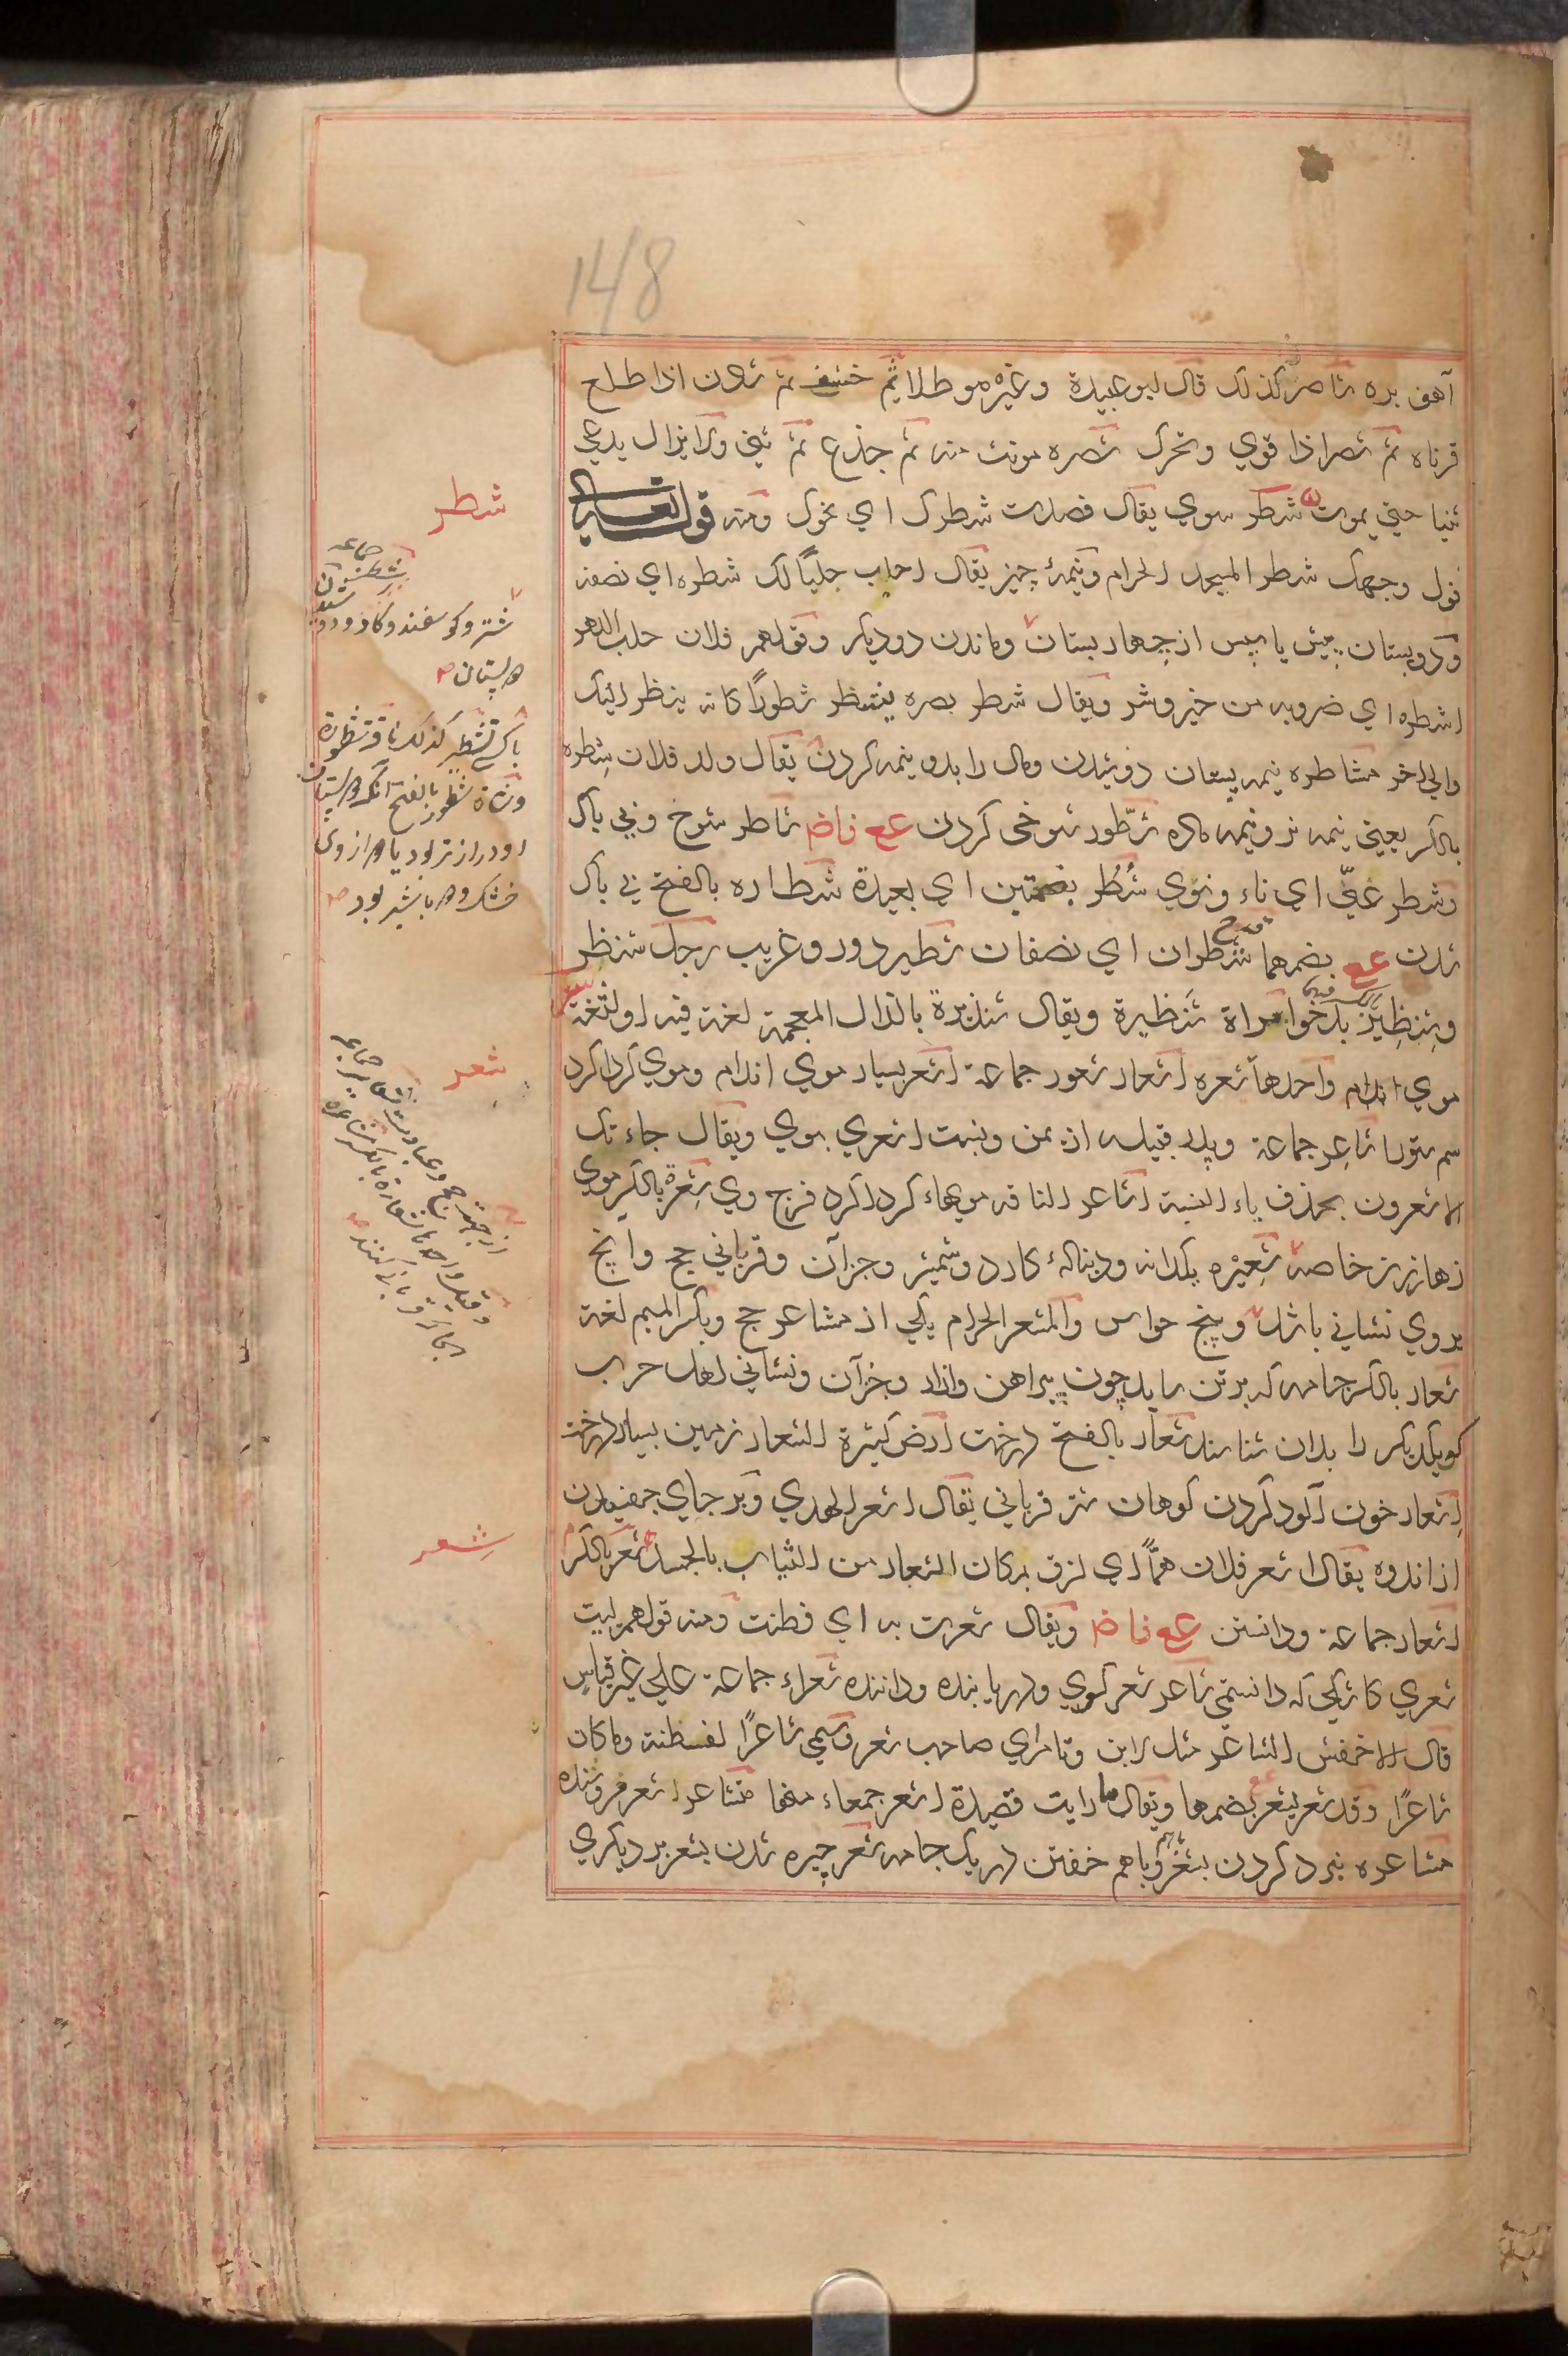 148
آهو بره شاصر كذلك قال ابو عبيدة وغيره هو طلا ثم خشف ثم شدن اذا طلع
قرناه ثم شصر اذا قوي وتحرك شصره مونث منه ثم جذع ثم ثني ولا يزال يدعي
ثنيا حتي يموت شطر سوي يقال قصدت شطرك اي نحوك ومنه قوله تعالي
فول وجهك شطر المسجد الحرام ونيمهٔ چيز يقال احلب حلبًا لك شطره اي نصفه
ودو پستان پيش يا پس از چهار پستان وماندن دو ديگر وقولهم فلان حلب الدهر
اشطره اي ضروبه من خير وشر ويقال شطر بصره يشطر شطورًا كانه ينظر اليك
والي اخر مشاطره نيمه پستان دوشيدن ومال را بدو نيمه كردن يقال ولد فلان شطره
بالكسر يعني نيمه نر ونيمه ماده شطور شوخي كردن عع فاض شاطر شوخ وبي باك
وشطر عني اي ناء ونوي شُطُر بضمتين اي بعيدة شطاره بالفتح بي باك
شدن عع بضمهما قدح شطران اي نصفان شطير دور وغريب رجل شنظر
وشنظير بدخو امراة شنظيرة ويقال شنذيرة بالذال المعجمة لغة فيه او لثغة
موي اندام واحدها شعره اشعار شعور جماعة اشعر بسيار موي اندام وموي گرداگرد
سم ستور اشاعر جماعة وپدر قبيله از يمن ونسبت اشعري بوي ويقال جاءتك
الاشعرون بحذف ياء النسبة اشاعر الناقه مويهاء گرداگرد فرج وي شعرة بالكسر موي
زهار زن خاصه شعيره يكدانه ودنبالهٔ كارد وشمشير وجز آن وقرباني حج وانچ
بروي نشاني باشد وپنج حواس والمشعر الحرام يكي از مشاعر حج وبكسر الميم لغة
شعار بالكسر جامه كه بر تن سايد چون پيراهن وازار وجز آن ونشاني اهل حرب
كويكديگر را بدان شناسند شعار بالفتح درخت ارض كثيرة الشعار زمين بسيار درخت
اشعار خون آلود كردن كوهان شتر قرباني يقال اشعر الهدي وبر جاي چفسيدن
از اندوه يقال اشعر فلان همًّا اي لزق به مكان الشعار من الثياب بالجسد شعر بالكسر
اشعار جماعة ودانستن عع فا ض ويقال شعرت به اي فطنت ومنه قولهم ليت
شعري كاشكي كه دانستمي شاعر شعر گوي ودريابنده وداننده شعراء جماعة علي غير قياس
قال الاخفش الشاعر مثل لابن وتامر اي صاحب شعر وسمي شاعرًا لفطنته وما كان
شاعرًا وقد شعر يشعر بضمها ويقال ما رايت قصيدة اشعر جمعاء منها متشاعر شعر فروشنده
مشاعره نبرد كردن بشعر وباهم خفتن در يك جامه شعر چيره شدن بشعر بر ديگري
شطر
جماعه
شتر وگوسفند وگاو ودو
در پستان
باك تشطير كذلك ناقة شطور
وشاة شطور بالفتح آنكه در پستان
او دراز تر بود يا در از وي
خشك ودر با شير بود
شعر
شعر